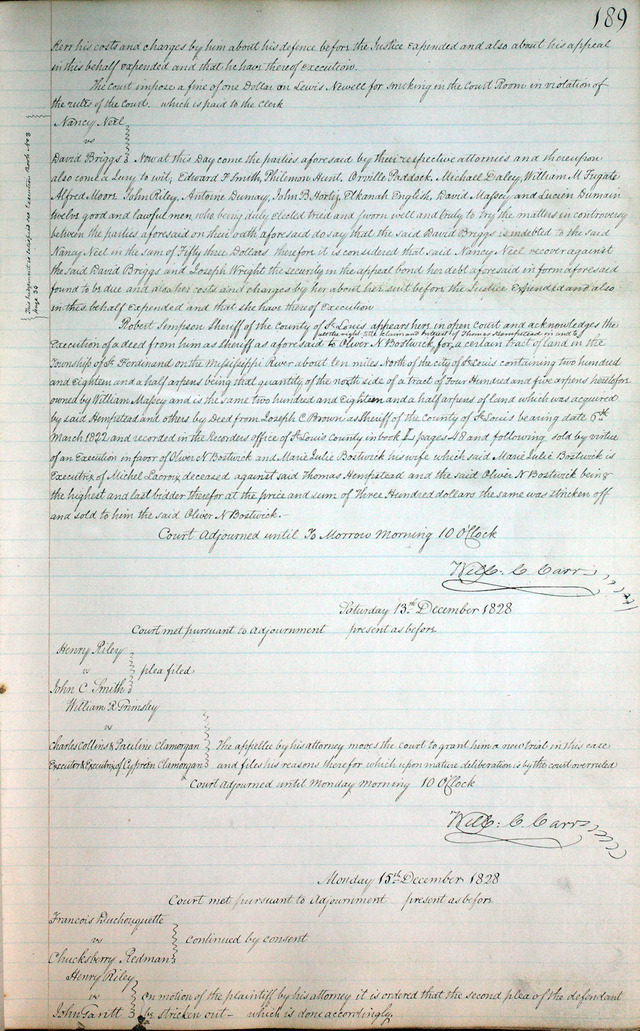 189
Kerr his costs and charges by him about his defence before the Justice expended and also about his appeal
in this behalf expended and that he have thereof execution.
The court impose a fine of one Dollar on Lewis Newell for smoking in the Court Room in violation of
the rules of the Court. which is paid to the Clerk
Nancy Neel
vs
David Briggs Now at this Day come the parties aforesaid by their respective attornies and thereupon
also come a Jury to wit; Edward F Smith, Philemon Hunt, Orville Paddock, Michael Daley, William M. Fugate
Alfred Moore John Riley, Antoine Dumay, John B Hortiz, Elkanah English, David Massey and Lucien Dumain
twelve good and lawful men, who being duly elected tried and sworn well and truly to try the matters in controversy
between the parties aforesaid on their oath aforesaid do say that the said David Briggs is indebted to the said
Nancy Neel in the sum of Fifty three Dollars therefor it is considered that said Nancy Neel recover against
the said David Briggs and Joseph Wright the security in the appeal bond her debt aforesaid in form aforesaid
found to be due and also her costs and charges by her about her suit before the Justice Expended and also
in this behalf expended and that she have thereof Execution
This Judgment is satisfied see Execution Book No 3
page 34
Robert Simpson Sheriff of the County of St Louis appears here in open Court and acknowledges the
all the right title claim and interest of Thomas Hempstead in and to
Execution of a deed from him as sheriff as aforesaid to Oliver N Bostwick, for a certain tract of land in the
Township of St Ferdinand on the Mississippi River about ten miles North of the city of St Louis containing two hundred
and eighteen and a half arpens being that quantity of the north side of a tract of Four Hundred and five arpens heretofor
owned by William Massey and is the same two hundred and Eighteen and a half arpens of land which was acquired
by said Hempstead and others by Deed from Joseph C Brown as Sheriff of the County of St Louis bearing date 6th
March 1822 and recorded in the Recorders office of St Louis County in book L pages 48 and following sold by virtue
of an Execution in favor of Oliver N Bostwick and Marie Julie Bostwick his wife which said Marie Julie Bostwick is
Executrix of Michel Lacroix deceased against said Thomas Hempstead and the said Oliver N Bostwick being
the highest and last bidder therefor at the price and sum of Three Hundred dollars the same was stricken off
and sold to him the said Oliver N Bostwick.
Court Adjourned until To Morrow Morning 10 O'Clock
Will: C Carr
Saturday 13th December 1828
Court met pursuant to Adjournment present as before
Henry Riley
vs plea filed
John C. Smith
William R Grimsley
vs
Charles Collins & Pauline Clamorgan The appellee by his attorney moves the court to grant him a new trial in this case
Executor & Executrix of Cyprein Clamorgan and files his reasons therefor which upon mature deliberation is by the court overruled
Court Adjourned until Monday Morning 10 O'Clock
Will: C. Carr
Monday 15th December 1828
Court met pursuant to Adjournment present as before
Francois Duchouquette
vs continued by consent
Chucksberry Redman
Henry Riley
vs on motion of the plaintiff by his attorney it is ordered that the second plea of the defendant
John Gavitt be stricken out - which is done accordingly.